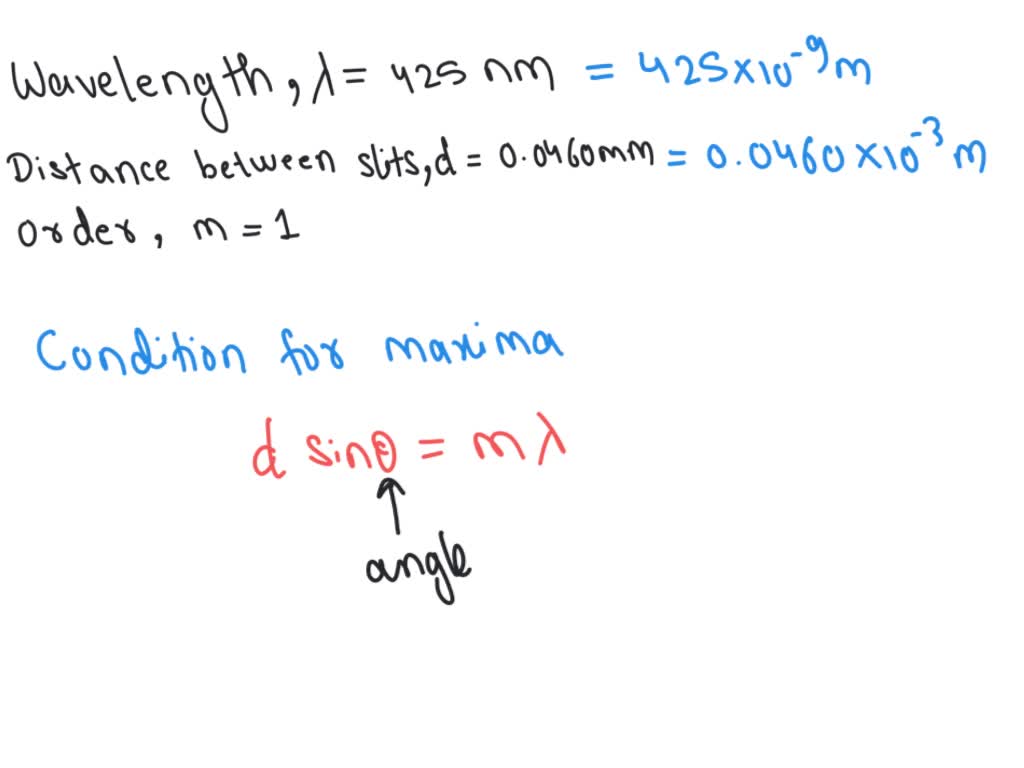 Wavelength, λ = 425 nm = 425×10⁻⁹ m
Distance between slits, d = 0.0460mm = 0.0460 ×10⁻³ m
order, m = 1
Condition for maxima
d sinθ = mλ
↑
angle